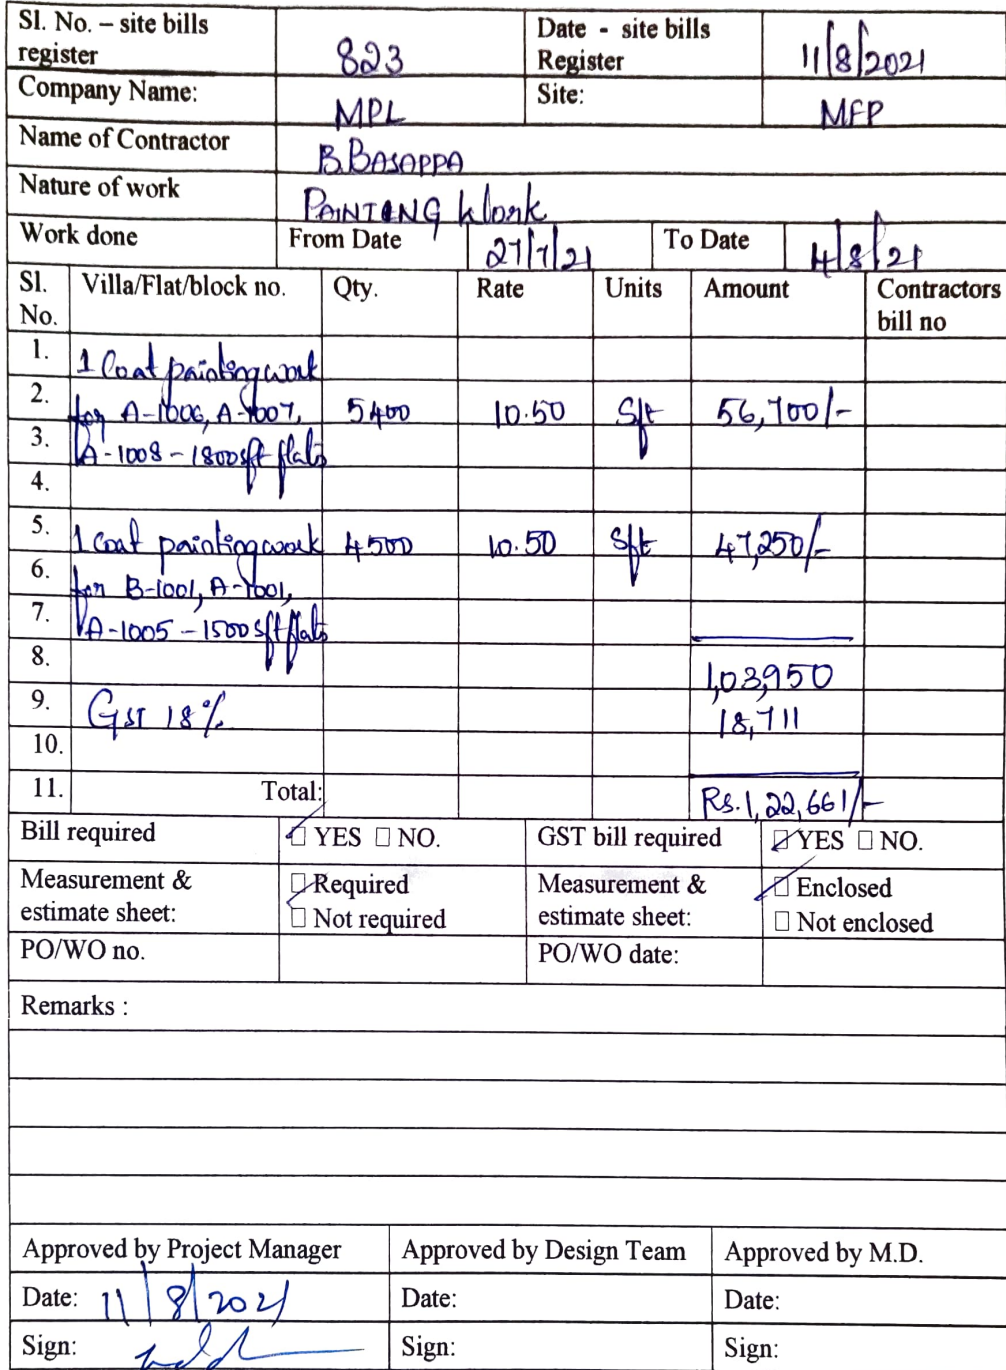 Sl. No. – site bills register 823 Date - site bills Register 11/8/2021
Company Name: MPL Site: MFP
Name of Contractor B.BASAPPA
Nature of work PAINTING Work
Work done From Date 27/7/21 To Date 4/8/21
Sl. No. Villa/Flat/block no. Qty. Rate Units Amount Contractors bill no
1. 1 Coat painting work
2. for A-1006, A-1007, 5400 10.50 Sft 56,700/-
3. A-1008 - 1800 sft flats
4.
5. 1 Coat painting work 4500 10.50 Sft 47,250/-
6. for B-1001, A-1001,
7. A-1005 - 1500 sft flats
8. 1,03,950
9. GST 18% 18,711
10.
11. Total: Rs.1,22,661/-
Bill required ☑ YES ☐ NO. GST bill required ☑ YES ☐ NO.
Measurement & estimate sheet: ☑ Required ☐ Not required Measurement & estimate sheet: ☑ Enclosed ☐ Not enclosed
PO/WO no. PO/WO date:
Remarks :
Approved by Project Manager Approved by Design Team Approved by M.D.
Date: 11/8/2021 Date: Date:
Sign: Sign: Sign: